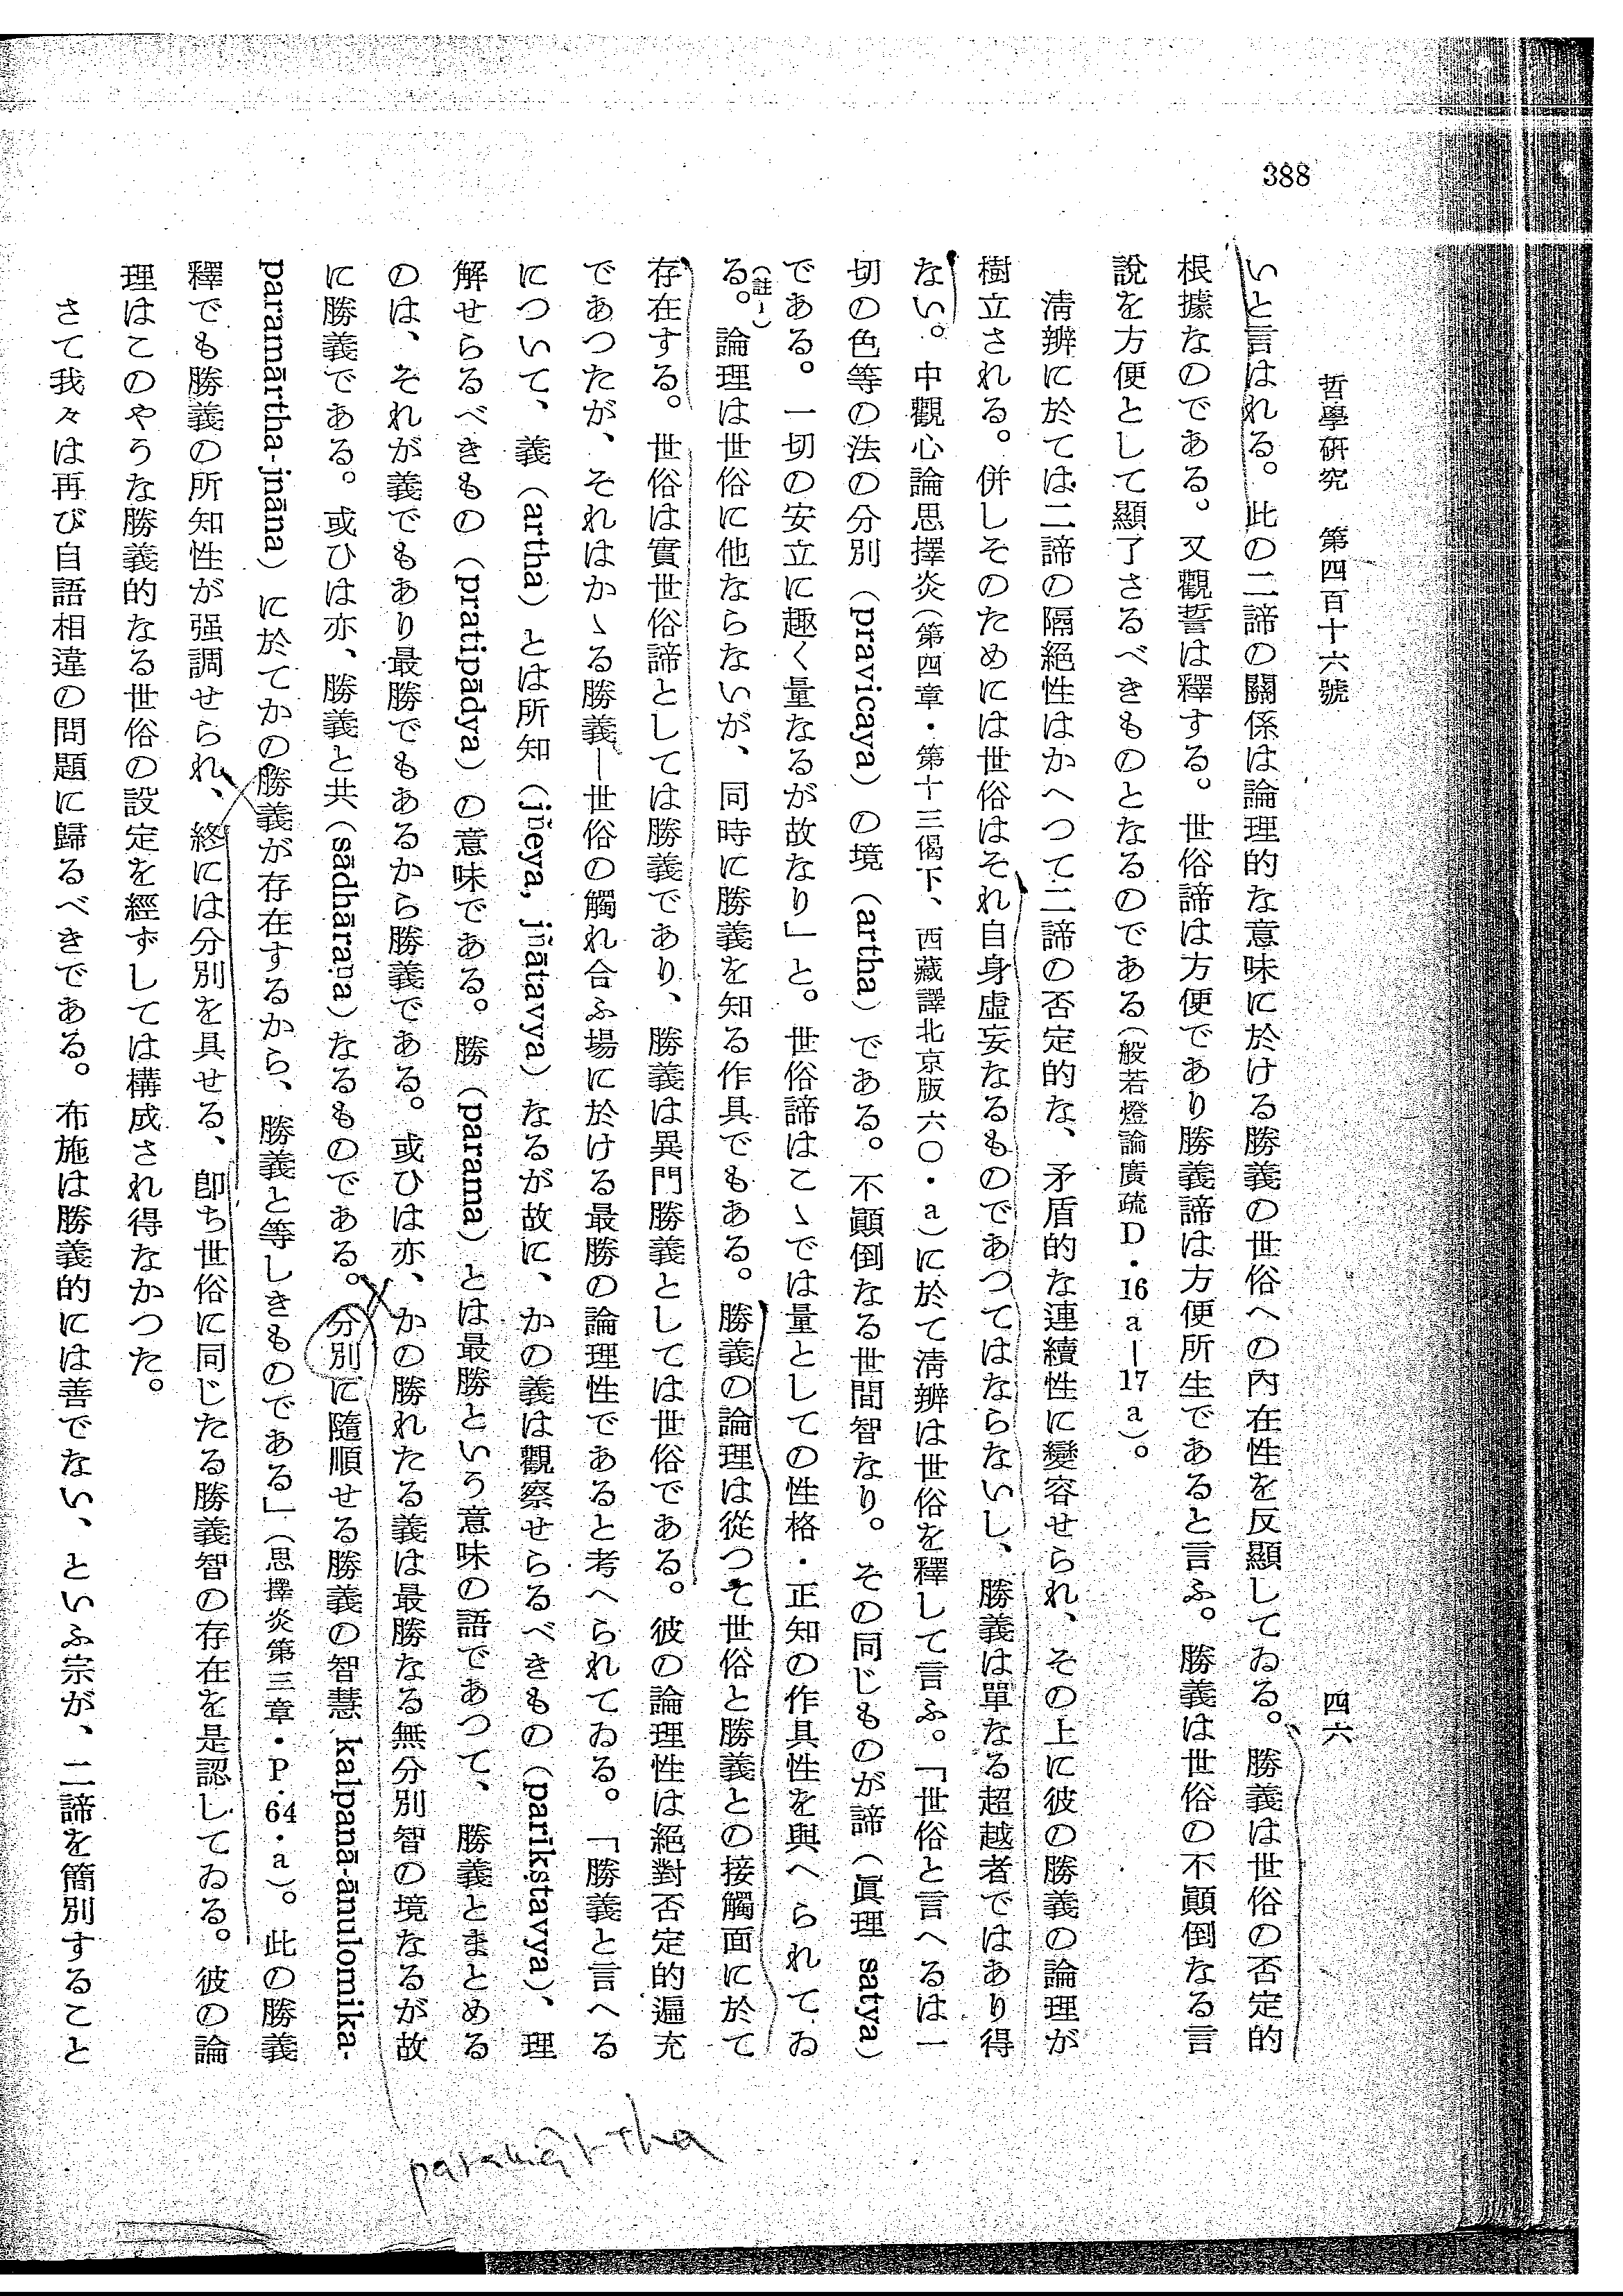 388
哲學硏究 第四百十六號
四六
いと言はれる。此の二諦の關係は論理的な意味に於ける勝義の世俗への內在性を反顯してゐる。勝義は世俗の否定的
根據なのである。又觀誓は釋する。世俗諦は方便であり勝義諦は方便所生であると言ふ。勝義は世俗の不顚倒なる言
說を方便として顯了さるべきものとなるのである(般若燈論廣疏D・16a—17a)。
淸辨に於ては二諦の隔絕性はかへつて二諦の否定的な、矛盾的な連續性に變容せられ、その上に彼の勝義の論理が
樹立される。併しそのためには世俗はそれ自身虛妄なるものであつてはならないし、勝義は單なる超越者ではあり得
ない。中觀心論思擇炎(第四章・第十三偈下、西藏譯北京版六〇・a)に於て淸辨は世俗を釋して言ふ。「世俗と言へるは一
切の色等の法の分別(pravicaya)の境(artha)である。不顚倒なる世間智なり。その同じものが諦(眞理 satya)
である。一切の安立に趣く量なるが故なり」と。世俗諦はこゝでは量としての性格・正知の作具性を與へられてゐ
(註1)
る。論理は世俗に他ならないが、同時に勝義を知る作具でもある。勝義の論理は從つて世俗と勝義との接觸面に於て
存在する。世俗は實世俗諦としては勝義であり、勝義は異門勝義としては世俗である。彼の論理性は絕對否定的遍充
であつたが、それはかゝる勝義—世俗の觸れ合ふ場に於ける最勝の論理性であると考へられてゐる。「勝義と言へる
について、義(artha)とは所知(jñeya, jñātavya)なるが故に、かの義は觀察せらるべきもの(parīkṣtavya)、理
解せらるべきもの(pratipādya)の意味である。勝(parama)とは最勝という意味の語であつて、勝義とまとめる
のは、それが義でもあり最勝でもあるから勝義である。或ひは亦、かの勝れたる義は最勝なる無分別智の境なるが故
に勝義である。或ひは亦、勝義と共(sādhāraṇa)なるものである。分別に隨順せる勝義の智慧 kalpanā-ānulomika-
paramārtha-jnāna)に於てかの勝義が存在するから、勝義と等しきものである」(思擇炎第三章・P.64・a)。此の勝義
釋でも勝義の所知性が强調せられ、終には分別を具せる、卽ち世俗に同じたる勝義智の存在を是認してゐる。彼の論
理はこのやうな勝義的なる世俗の設定を經ずしては構成され得なかつた。
さて我々は再び自語相違の問題に歸るべきである。布施は勝義的には善でない、といふ宗が、二諦を簡別すること
paramārtha